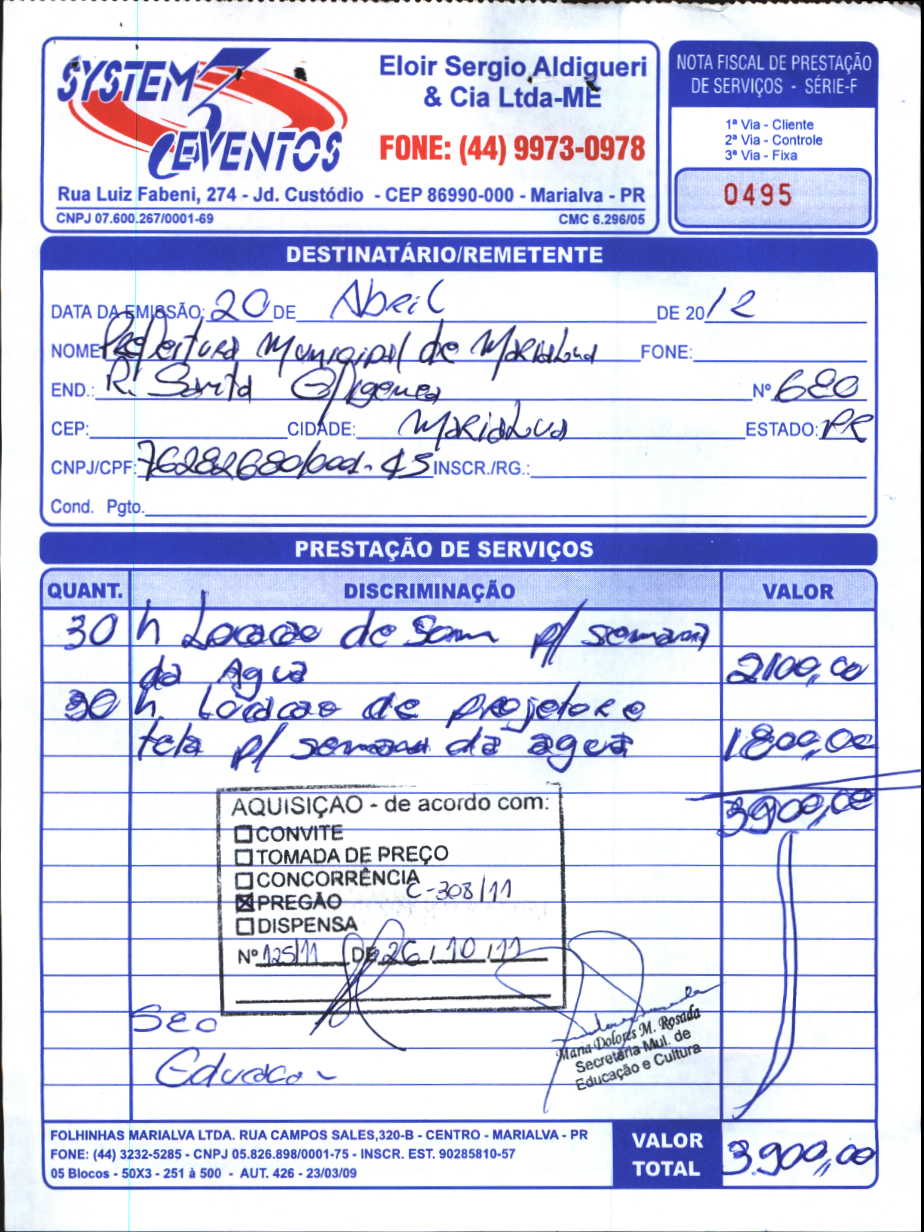 SYSTEM 3 EVENTOS
Eloir Sergio Aldigueri
& Cia Ltda-ME
FONE: (44) 9973-0978
Rua Luiz Fabeni, 274 - Jd. Custódio - CEP 86990-000 - Marialva - PR
CNPJ 07.600.267/0001-69 CMC 6.296/05
NOTA FISCAL DE PRESTAÇÃO
DE SERVIÇOS - SÉRIE-F
1ª Via - Cliente
2ª Via - Controle
3ª Via - Fixa
0495
DESTINATÁRIO/REMETENTE
DATA DA EMISSÃO: 20 DE Abril DE 2012
NOME Prefeitura Municipal de Marialva FONE:
END.: R. Santa Efigenea Nº 680
CEP: CIDADE: Marialva ESTADO: PR
CNPJ/CPF: 76282680/0001-45 INSCR./RG.:
Cond. Pgto.
PRESTAÇÃO DE SERVIÇOS
QUANT. DISCRIMINAÇÃO VALOR
30 h Locacao de Som p/ semana
da Agua 2100,00
30 h Locacao de projetor e
tela p/ semana da agua 1800,00
3900,00
AQUISIÇAO - de acordo com:
CONVITE
TOMADA DE PREÇO
CONCORRÊNCIA
C-308/11
PREGÃO
DISPENSA
Nº 125/11 DE 26/10/11
Sec
Educacao
Maria Dolores M. Rosada
Secretária Mul. de
Educação e Cultura
FOLHINHAS MARIALVA LTDA. RUA CAMPOS SALES,320-B - CENTRO - MARIALVA - PR
FONE: (44) 3232-5285 - CNPJ 05.826.898/0001-75 - INSCR. EST. 90285810-57
05 Blocos - 50X3 - 251 à 500 - AUT. 426 - 23/03/09
VALOR
TOTAL 3.900,00